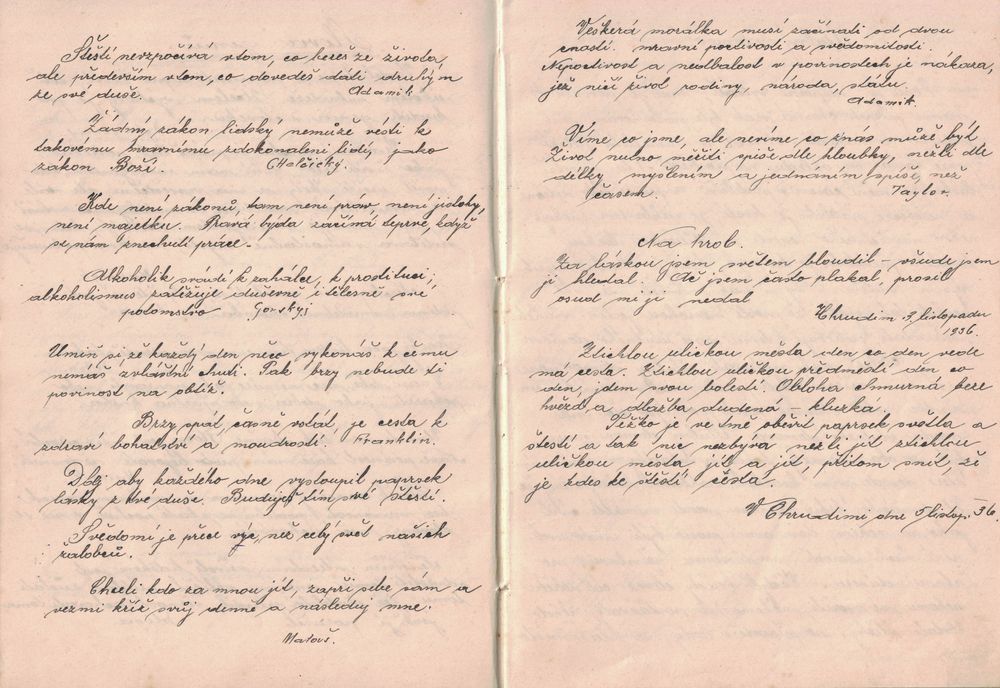 Štěstí nezpočívá v tom, co bereš ze života,
ale především v tom, co dovedeš dáti druhým
ze své duše. Adamík
Žádný zákon lidský nemůže vésti k
takovému mravnímu zdokonalení lidí, jako
zákon Boží. Chelčický.
Kde není zákonů, tam není prav, není jistoty,
není majetku. Pravá býda začíná teprve, když
se nám znechutí práce.
Alkoholik svádí k zahálce, k prostituci;
alkoholismus zatěžuje duševně i tělesně své
potomstvo Gorskyj
Umiň si že každý den něco vykonáš k čemu
nemáš zvláštní chuti. Tak brzy nebude ti
povinnost na obtíž.
Brzy spát, časně vstát, je cesta k
zdraví bohatství a moudrosti. Franklin.
Dbej aby každého dne vystoupil paprsek
lásky z tvé duše. Buduješ tím své štěstí.
Svědomí je přece výc, než celý svět našich
žalobců.
Chceli kdo za mnou jít, zapři sebe sám a
vezmi kříž svůj denně a následuj mne.
Matouš.
Veškerá morálka musí začínati od dvou
cností. mravní poctivosti a svědomitosti.
Nepoctivost a nedbalost v povinnostech je nákaza,
jež ničí život rodiny, národa, státu.
Adamík.
Víme co jsme, ale nevíme, co z nás může být.
Život nutno měřiti spíše dle hloubky, nežli dle
délky myšlením a jednáním spíše, než
časem. Taylor.
Na hrob.
Za láskou jsem světem bloudil – všude jsem
ji hledal. Ač jsem často plakal, prosil
osud mi ji nedal
Chrudim 3. listopadu
1936.
Ztichlou uličkou města den co den vede
má cesta. Ztichlou uličkou předměstí den co
den, jdem svou bolestí. Obloha smurná beze
hvězd, a dlažba studená – kluzká.
Těžko je ve tmě oběvit paprsek světla a
štěstí a tak nic nezbývá nežli jít ztichlou
uličkou města, jít a jít, přitom snít, že
je zde ke štěstí cesta.
V Chrudimi dne 5 listop. 36.